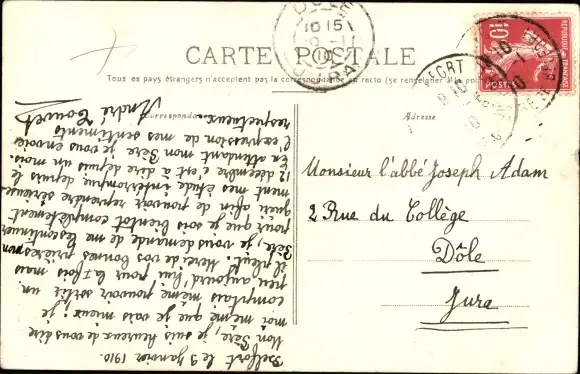 CARTE POSTALE
Tous les pays étrangers n'acceptent pas la correspondance au recto (se renseigner à la poste)
Correspondance
Adresse
RÉPUBLIQUE FRANÇAISE
10
POSTES
BELFORT
Monsieur l'abbé Joseph Adam
2 Rue du Collège
Dôle
Jura
Belfort le 9 Janvier 1910.
Mon Père, je suis heureux de vous dire
moi même que je vais mieux; je
comptais même pouvoir sortir un
peu aujourd'hui pour la 1 fois mais
il pleut. Merci de vos bonnes prières mon
Père, je vous demande de me les continuer
pour que je sois bientôt complètement
guéri afin de pouvoir reprendre sérieuse-
ment mes études interrompues depuis le
12 décembre c'est à dire depuis un mois.
En attendant mon Père je vous envoie
l'expression de mes sentiments
respectueux.
André